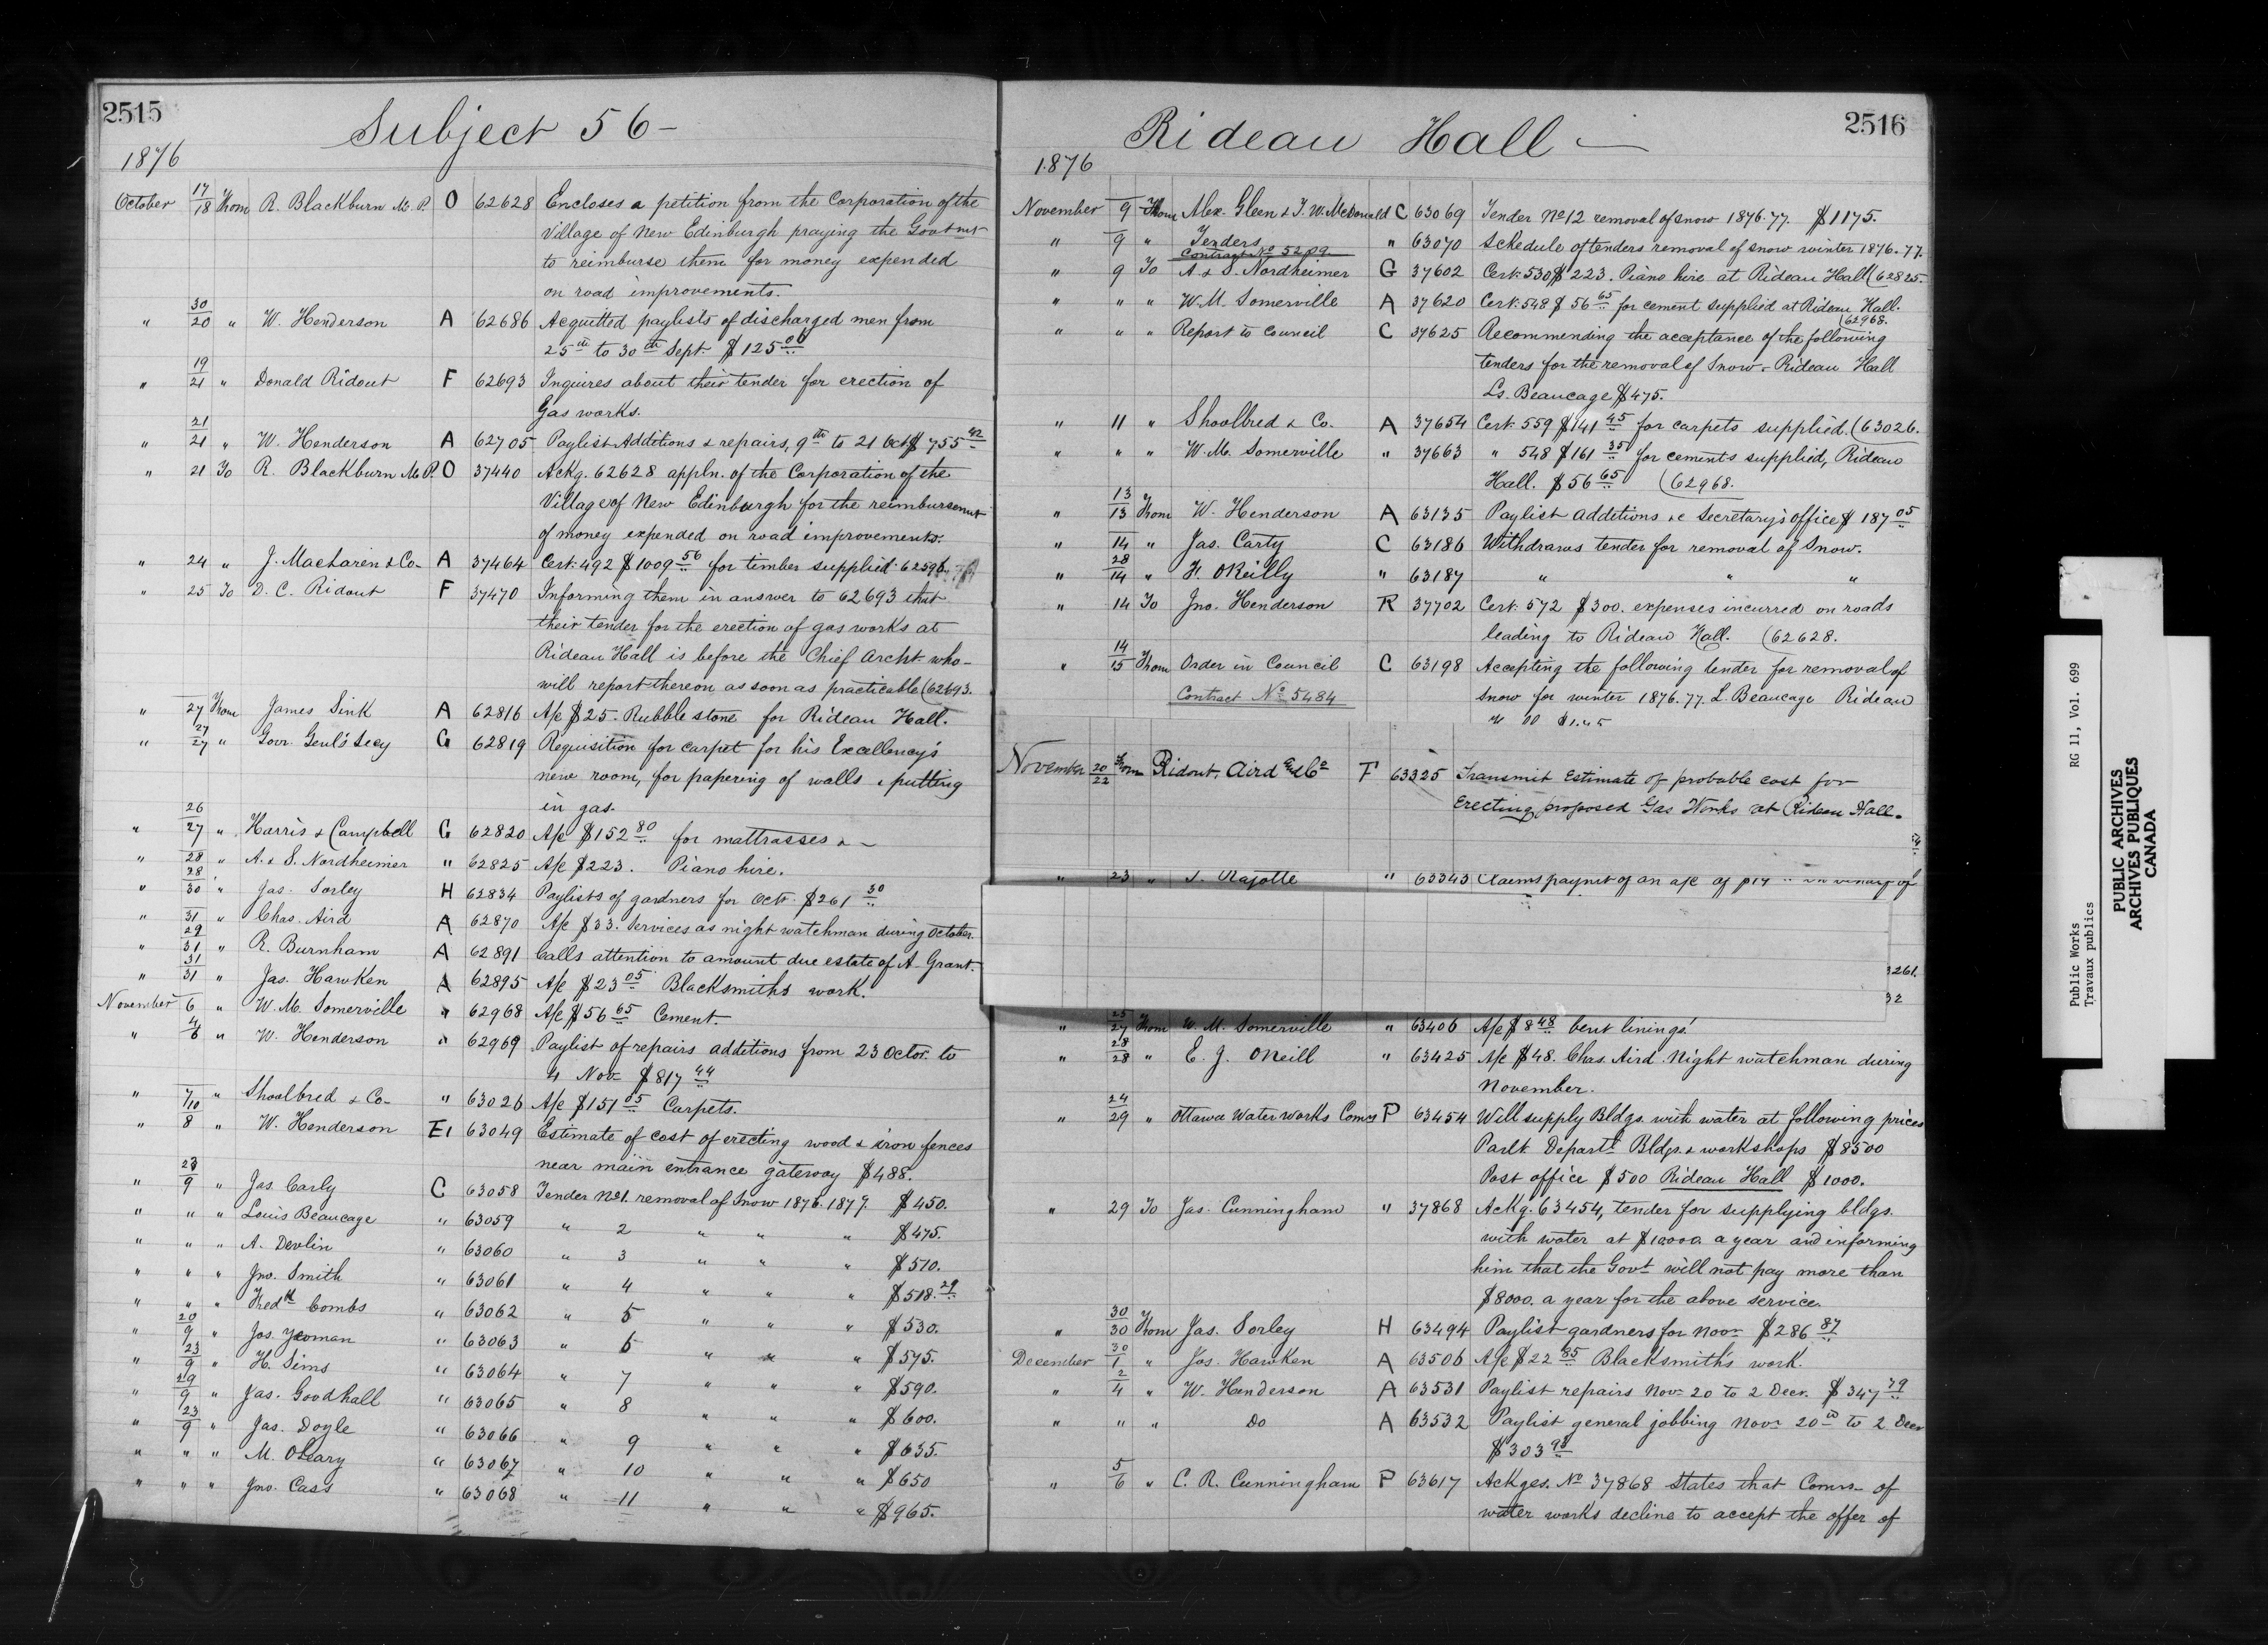 2515
Subject 56-
1876
October 17/18 From R. Blackburn M.P. O 62628 Encloses a petition from the Corporation of the
Village of New Edinburgh praying the Govt
to reimburse them for money expended
on road improvements.
" 30/20 " W. Henderson A 62686 Acquitted paylists of discharged men from
25th to 30th Sept. $125 00
" 19/21 " Donald Ridout F 62693 Inquires about their tender for erection of
Gas works.
" 21/21 " W. Henderson A 62705 Paylist Additions & repairs, 9th to 21 Oct $755 42
" 21 To R. Blackburn M.P. O 37440 Ackg. 62628 appln. of the Corporation of the
Village of New Edinburgh for the reimbursemnt
of money expended on road improvements.
" 24 " J. MacLaren & Co- A 37464 Cert. 492 $1009 56 for timber supplied 62596
" 25 To D. C. Ridout F 37470 Informing them in answer to 62693 that
their tender for the erection of gas works at
Rideau Hall is before the Chief Archt. who-
will report thereon as soon as practicable (62693.
" 27 From James Sink A 62816 A/c $25. Rubble stone for Rideau Hall.
" 27/27 " Govr. Genl's Secy G 62819 Requisition for carpet for his Excellency's
new room, for papering of walls & putting
in gas.
" 26/27 " Harris & Campbell G 62820 A/c $152 80 for mattrasses &-
" 28 " A. & S. Nordheimer " 62825 A/c $223. Piano hire.
" 28/30 " Jas. Sorley H 62834 Paylists of gardners for Octr. $261 30
" 31 " Chas. Aird A 62870 A/c $33. Services as night watchman during October.
" 29/31 " R. Burnham A 62891 Calls attention to amount due estate of A. Grant.
" 31/31 " Jas. Hawken A 62895 A/c $23 05 Blacksmiths work.
November 6 " W. M. Somerville " 62968 A/c $56 65 Cement.
" 4/6 " W. Henderson " 62969 Paylist of repairs additions from 23 Octor. to
4 Nov- $817 44
" 7/10 " Shoolbred & Co- " 63026 A/c $151 05 Carpets.
" 8 " W. Henderson E1 63049 Estimate of cost of erecting wood & iron fences
near main entrance gateway $488.
" 23/9 " Jas. Carly C 63058 Tender No1. removal of Snow 1876.1877. $450.
" " " Louis Beaucage " 63059 " 2 " " " $475.
" " " A. Devlin " 63060 " 3 " " " $510.
" " " Jno. Smith " 63061 " 4 " " " $518.29
" " " Fredk Combs " 63062 " 5 " " " $530.
" 20/9 " Jos. Yeoman " 63063 " 6 " " " $575.
" 23/9 " H. Sims " 63064 " 7 " " " $590.
" 29/9 " Jas. Goodhall " 63065 " 8 " " " $600.
" 23/9 " Jas. Doyle " 63066 " 9 " " " $635.
" " " M. OLeary " 63067 " 10 " " " $650
" " " Jno. Cass " 63068 " 11 " " " $965.
Rideau Hall -
2516
1876
November 9 From Alex. Gleen & J. W. McDonald C 63069 Tender No12 removal of snow 1876.77. $1175.
" 9 " Tenders " 63070 Schedule of tenders removal of snow winter 1876.77.
Contract No 5209
" 9 To A & S. Nordheimer G 37602 Cert. 530 $223. Piano hire at Rideau Hall (62825.
" " " W. M. Somerville A 37620 Cert. 548 $56 65 for cement supplied at Rideau Hall.
(62968.
" " " Report to Council C 37625 Recommending the acceptance of the following
tenders for the removal of Snow- Rideau Hall
Ls. Beaucage $475.
" 11 " Shoolbred & Co. A 37654 Cert. 559 $141 45 for carpets supplied. (63026.
" " " W. M. Somerville " 37663 " 548 $161 35 for cements supplied, Rideau
Hall. $56 65 (62968.
" 13/13 From W. Henderson A 63135 Paylist additions &c Secretary's office $187 05
" 14 " Jas. Carty C 63186 Withdraws tender for removal of Snow.
" 28/14 " F. OReilly " 63187 " " "
" 14 To Jno. Henderson R 37702 Cert. 572 $300. expenses incurred on roads
leading to Rideau Hall. (62628.
" 14/15 From Order in Council C 63198 Accepting the following tender for removal of
Contract No 5484 snow for winter 1876.77. L. Beaucage Rideau
November 20/22 From Ridout, Aird and Co F 63325 Transmit Estimate of probable cost for
Erecting proposed Gas Works at Rideau Hall.
" 23 " Rajotte " 63343 Claims paymt of an a/c of
3261.
32
" 25/27 From W. M. Somerville " 63406 A/c $8 48 bent linings
" 28/28 " E. J. ONeill " 63425 A/c $48. Chas. Aird. Night watchman during
November.
" 24/29 " Ottawa Water Works Comrs P 63454 Will supply Bldgs. with water at following prices
Parlt. Departl Bldgs. & workshops $8500
Post office $500 Rideau Hall $1000.
" 29 To Jas. Cunningham " 37868 Ackg. 63454, tender for supplying bldgs.
with water at $10000 a year and informing
him that the Govt will not pay more than
$8000. a year for the above service.
" 30/30 From Jas. Sorley H 63494 Paylist gardners for Novr $286 87
December 30/1 " Jas. Hawken A 63506 A/c $22 85 Blacksmiths work.
" 2/4 " W. Henderson A 63531 Paylist repairs Nov- 20 to 2 Decr. $347 79
" " " Do A 63532 Paylist general jobbing Novr 20th to 2 Decr
$303 98
" 5/6 " C. R. Cunningham P 63617 Ackges. No 37868 States that Comrs- of
water works decline to accept the offer of
Public Works
Travaux publics
RG 11, Vol. 699
PUBLIC ARCHIVES
ARCHIVES PUBLIQUES
CANADA